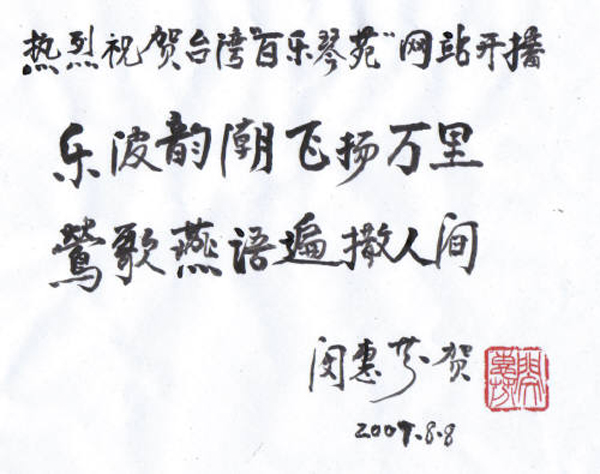 热烈祝贺台湾"百乐琴苑"网站开播
乐波韵潮飞扬万里
鶯歌燕语遍撒人间
闵惠芬贺
2009.8.8